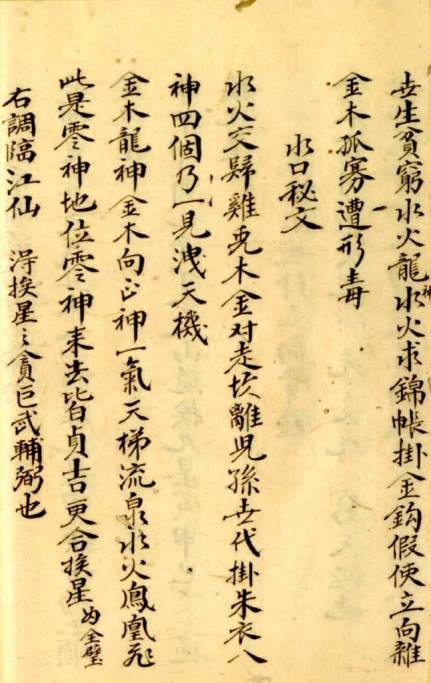 世生貧窮水火龍神水火求錦帳掛金鈎假使立向離
金木孤寡遭形毒
水口秘文
水火交歸雞兎木金对走坎離児孫世代掛朱衣八
神四個乃一見洩天機
金木龍神金木向正神一氣天梯流泉水火鳳凰飛
此是零神地位零神来去皆貞吉更合挨星如全璧
右調臨江仙 得挨星之貪巨武輔弼也